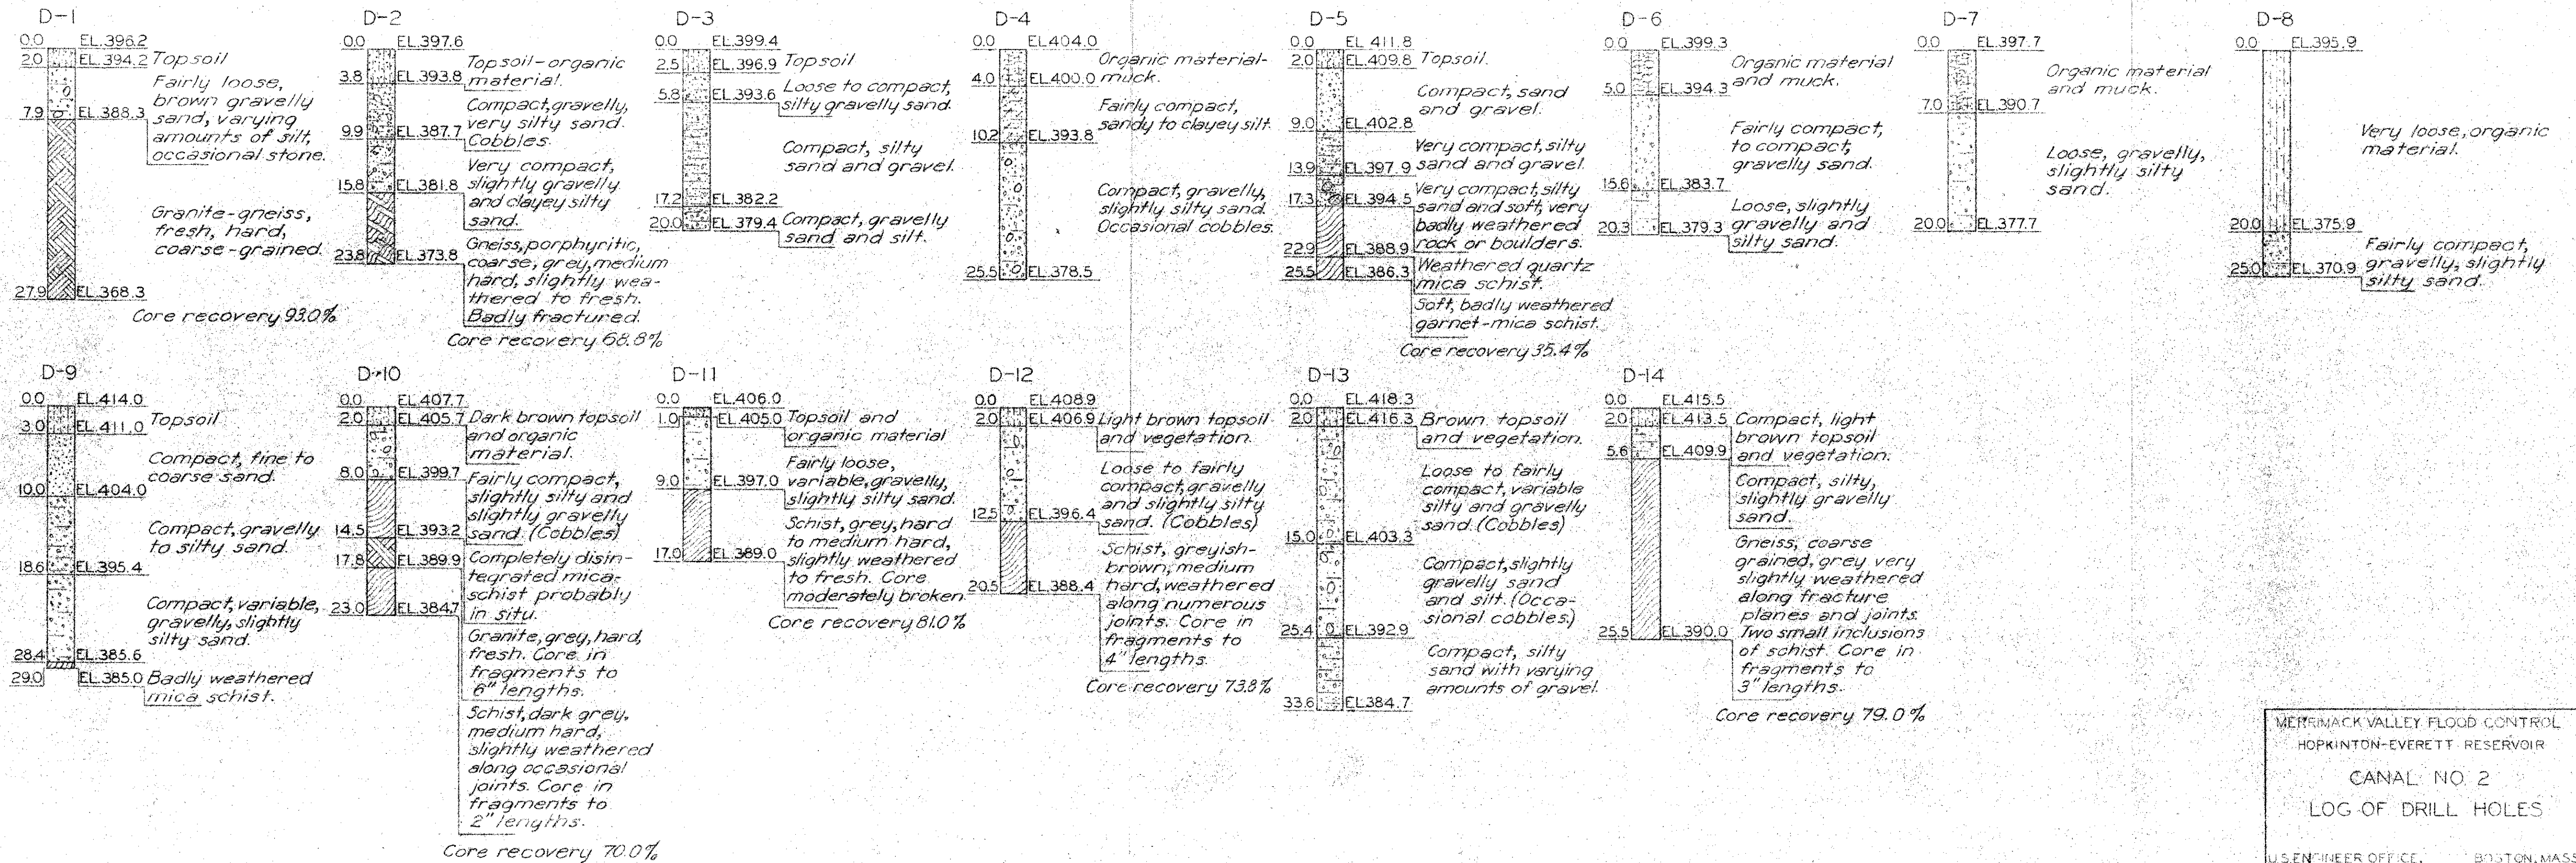 D-1
0.0 EL.396.2
2.0 EL.394.2 Topsoil
Fairly loose,
brown gravelly
sand, varying
7.9 EL.388.3
amounts of silt,
occasional stone.
Granite-gneiss,
fresh, hard,
coarse-grained.
27.9 EL.368.3
Core recovery 93.0%
D-2
0.0 EL.397.6
Topsoil-organic
material.
3.8 EL.393.8
Compact, gravelly,
very silty sand.
Cobbles.
9.9 EL.387.7
Very compact,
slightly gravelly
and clayey silty
sand.
15.8 EL.381.8
Gneiss, porphyritic,
coarse, grey, medium
hard, slightly wea-
thered to fresh.
Badly fractured.
23.8 EL.373.8
Core recovery 68.8%
D-3
0.0 EL.399.4
2.5 EL.396.9 Topsoil
Loose to compact,
silty gravelly sand.
5.8 EL.393.6
Compact, silty
sand and gravel.
17.2 EL.382.2
Compact, gravelly
sand and silt.
20.0 EL.379.4
D-4
0.0 EL.404.0
Organic material-
muck.
4.0 EL.400.0
Fairly compact,
sandy to clayey silt.
10.2 EL.393.8
Compact, gravelly,
slightly silty sand.
Occasional cobbles.
25.5 EL.378.5
D-5
0.0 EL.411.8
2.0 EL.409.8 Topsoil.
Compact, sand
and gravel.
9.0 EL.402.8
Very compact, silty
sand and gravel.
13.9 EL.397.9
Very compact, silty
sand and soft, very
badly weathered
rock or boulders.
17.3 EL.394.5
22.9 EL.388.9
Weathered quartz
mica schist.
25.5 EL.386.3
Soft, badly weathered
garnet-mica schist.
Core recovery 35.4%
D-6
0.0 EL.399.3
Organic material
and muck.
5.0 EL.394.3
Fairly compact,
to compact,
gravelly sand.
15.6 EL.383.7
Loose, slightly
gravelly and
silty sand.
20.3 EL.379.3
D-7
0.0 EL.397.7
Organic material
and muck.
7.0 EL.390.7
Loose, gravelly,
slightly silty
sand.
20.0 EL.377.7
D-8
0.0 EL.395.9
Very loose, organic
material.
20.0 EL.375.9
Fairly compact,
gravelly, slightly
silty sand.
25.0 EL.370.9
D-9
0.0 EL.414.0
3.0 EL.411.0 Topsoil
Compact, fine to
coarse sand.
10.0 EL.404.0
Compact, gravelly
to silty sand.
18.6 EL.395.4
Compact, variable,
gravelly, slightly
silty sand.
28.4 EL.385.6
29.0 EL.385.0 Badly weathered
mica schist.
D-10
0.0 EL.407.7
2.0 EL.405.7 Dark brown topsoil
and organic
material.
8.0 EL.399.7
Fairly compact,
slightly silty and
slightly gravelly
sand. (Cobbles)
14.5 EL.393.2
17.8 EL.389.9 Completely disin-
tegrated mica-
schist probably
in situ.
23.0 EL.384.7
Granite, grey, hard,
fresh. Core in
fragments to
6" lengths.
Schist, dark grey,
medium hard,
slightly weathered
along occasional
joints. Core in
fragments to
2" lengths.
Core recovery 70.0%
D-11
0.0 EL.406.0
1.0 EL.405.0 Topsoil and
organic material
Fairly loose,
variable, gravelly,
slightly silty sand.
9.0 EL.397.0
Schist, grey, hard
to medium hard,
slightly weathered
to fresh. Core
moderately broken.
17.0 EL.389.0
Core recovery 81.0%
D-12
0.0 EL.408.9
2.0 EL.406.9 Light brown topsoil
and vegetation.
Loose to fairly
compact, gravelly
and slightly silty
sand. (Cobbles)
12.5 EL.396.4
Schist, greyish-
brown, medium
hard, weathered
along numerous
joints. Core in
fragments to
4" lengths.
20.5 EL.388.4
Core recovery 73.8%
D-13
0.0 EL.418.3
2.0 EL.416.3 Brown topsoil
and vegetation.
Loose to fairly
compact, variable
silty and gravelly
sand. (Cobbles)
15.0 EL.403.3
Compact, slightly
gravelly sand
and silt. (Occa-
sional cobbles.)
25.4 EL.392.9
Compact, silty
sand with varying
amounts of gravel.
33.6 EL.384.7
D-14
0.0 EL.415.5
2.0 EL.413.5 Compact, light
brown topsoil
and vegetation.
5.6 EL.409.9
Compact, silty,
slightly gravelly
sand.
Gneiss, coarse
grained, grey very
slightly weathered
along fracture
planes and joints.
Two small inclusions
of schist. Core in
fragments to
3" lengths.
25.5 EL.390.0
Core recovery 79.0%
MERRIMACK VALLEY FLOOD CONTROL
HOPKINTON-EVERETT RESERVOIR
CANAL NO. 2
LOG OF DRILL HOLES
U.S. ENGINEER OFFICE, BOSTON, MASS